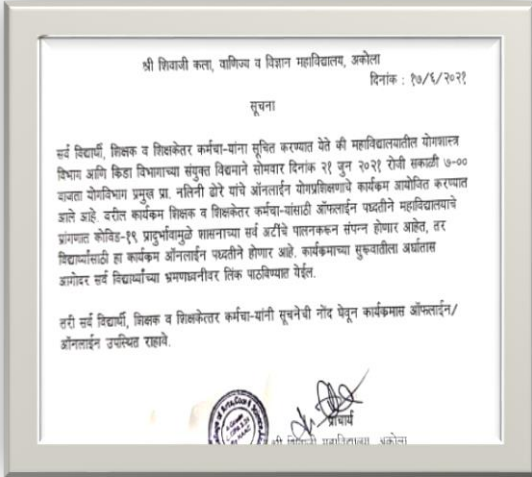 श्री शिवाजी कला, वाणिज्य व विज्ञान महाविद्यालय, अकोला
दिनांक : १७/६/२०२१
सूचना
सर्व विद्यार्थी, शिक्षक व शिक्षकेतर कर्मचा-यांना सूचित करण्यात येते की महाविद्यालयातील योगशास्त्र
विभाग आणि किडा विभागाच्या संयुक्त विद्यमाने सोमवार दिनांक २१ जुन २०२१ रोजी सकाळी ७-००
वाजता योगविभाग प्रमुख प्रा. नलिनी ढोरे यांचे ऑनलाईन योगप्रशिक्षणाचे कार्यक्रम आयोजित करण्यात
आले आहे. वरील कार्यक्रम शिक्षक व शिक्षकेतर कर्मचा-यांसाठी ऑफलाईन पध्दतीने महाविद्यालयाचे
प्रांगणात कोविड-१९ प्रादुर्भावामुळे शासनाच्या सर्व अटींचे पालनकरून संपन्न होणार आहेत, तर
विद्यार्थ्यांसाठी हा कार्यक्रम ऑनलाईन पध्दतीने होणार आहे. कार्यक्रमाच्या सुरूवातीला अर्धातास
आगोदर सर्व विद्यार्थ्यांच्या भ्रमणध्वनीवर लिंक पाठविण्यात येईल.
तरी सर्व विद्यार्थी, शिक्षक व शिक्षकेत्तर कर्मचा-यांनी सूचनेची नोंद घेवून कार्यक्रमास ऑफलाईन/
ऑनलाईन उपस्थित राहावे.
प्राचार्य
श्री शिवाजी महाविद्यालय, अकोला